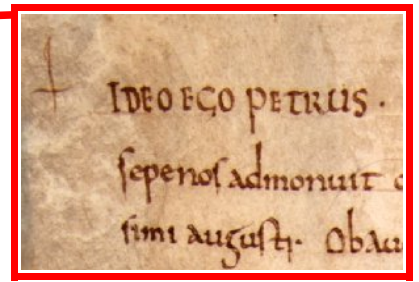 IDEO EGO PETRUS ·
sepenos admonuit
simi augusti. Ob